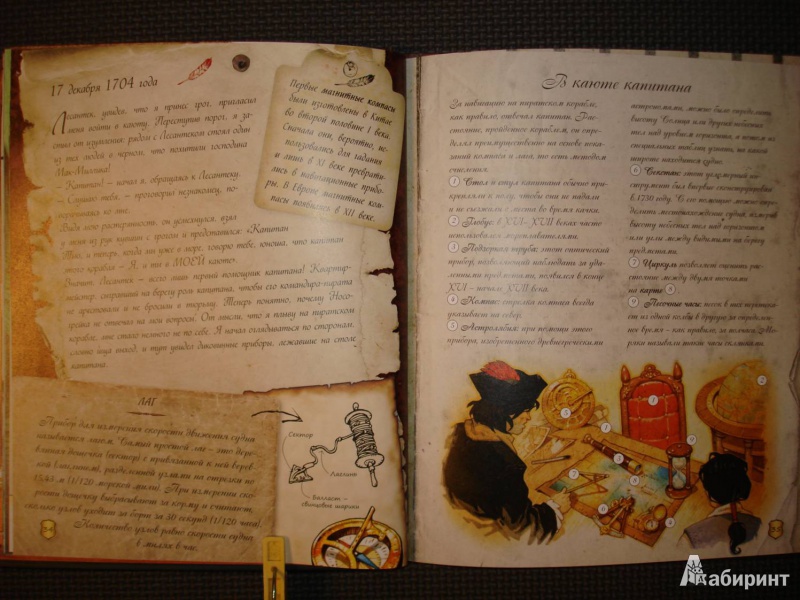 17 декабря 1704 года
Лесантек, увидев, что я принес грог, пригласил
меня войти в каюту. Переступив порог, я за-
стыл от изумления: рядом с Лесантеком стоял один
из тех людей в черном, что похитили господина
Мак-Миллана!
– Капитан! – начал я, обращаясь к Лесантеку.
– Слушаю тебя, – проговорил незнакомец, по-
ворачиваясь ко мне.
Видя мою растерянность, он усмехнулся, взял
у меня из рук кувшин с грогом и представился: «Капитан
Тил, и теперь, когда мы уже в море, говорю тебе, юноша, что капитан
этого корабля – Я, и это МОЕЙ каюта!»
Значит, Лесантек – всего лишь первый помощник капитана! Квартир-
мейстер, сыгравший на берегу роль капитана, чтобы его командира-пирата
не арестовали и не бросили в тюрьму. Теперь понятно, почему Носо-
ройка не отвечал на мои вопросы. От мысли, что я плыву на пиратском
корабле, мне стало немного не по себе. Я начал оглядываться по сторонам,
словно ища выход, и тут увидел диковинные приборы, лежавшие на столе
капитана.
Первые магнитные компасы
были изготовлены в Китае
во второй половине I века.
Сначала они, вероятно, ис-
пользовались для гадания
и лишь в XI веке преврати-
лись в навигационные прибо-
ры. В Европе магнитные ком-
пасы появились в XII веке.
ЛАГ
Прибор для измерения скорости движения судна
называется лагом. Самый простой лаг – это дере-
вянная дощечка (сектор) с привязанной к ней верёв-
кой (лаглинем), разделенной узлами на отрезки по
15,43 м (1/120 морской мили). При измерении ско-
рости дощечку выбрасывают за корму и считают,
сколько узлов уходит за борт за 30 секунд (1/120 часа).
Количество узлов равно скорости судна
в милях в час.
Сектор
Лаглинь
Балласт –
свинцовые шарики
В каюте капитана
За навигацию на пиратском корабле,
как правило, отвечал капитан. Рас-
стояние, пройденное кораблем, он опре-
делял преимущественно на основе пока-
заний компаса и лага, то есть методом
счисления.
1 Стол и стул капитана обычно при-
крепляли к полу, чтобы они не падали
и не съезжали с места во время качки.
2 Глобус: в XVI–XVII веках часто
использовался мореплавателями.
3 Подзорная труба: этот оптический
прибор, позволяющий наблюдать за уда-
ленными предметами, появился в конце
XVI – начале XVII века.
4 Компас: стрелка компаса всегда
указывает на север.
5 Астролябия: при помощи этого
прибора, изобретенного древнегреческими
астрономами, можно было определить
высоту Солнца или другой небесного
тела над уровнем горизонта, а потом из
специальных таблиц узнать, на какой
широте находится судно.
6 Секстан: этот угломерный ин-
струмент был впервые сконструирован
в 1730 году. С его помощью можно опре-
делить местонахождение судна, измерив
высоту небесных тел над горизонтом
или углы между видимыми на берегу
предметами.
7 Циркуль позволяет оценить рас-
стояние между двумя точками
на карте 8
9 Песочные часы: песок в них перетекает
из одной колбы в другую за определен-
ное время – как правило, за полчаса. Мо-
ряки называли такие часы склянками.
1
2
5
1
3
9
7
8
6
4
Лабиринт